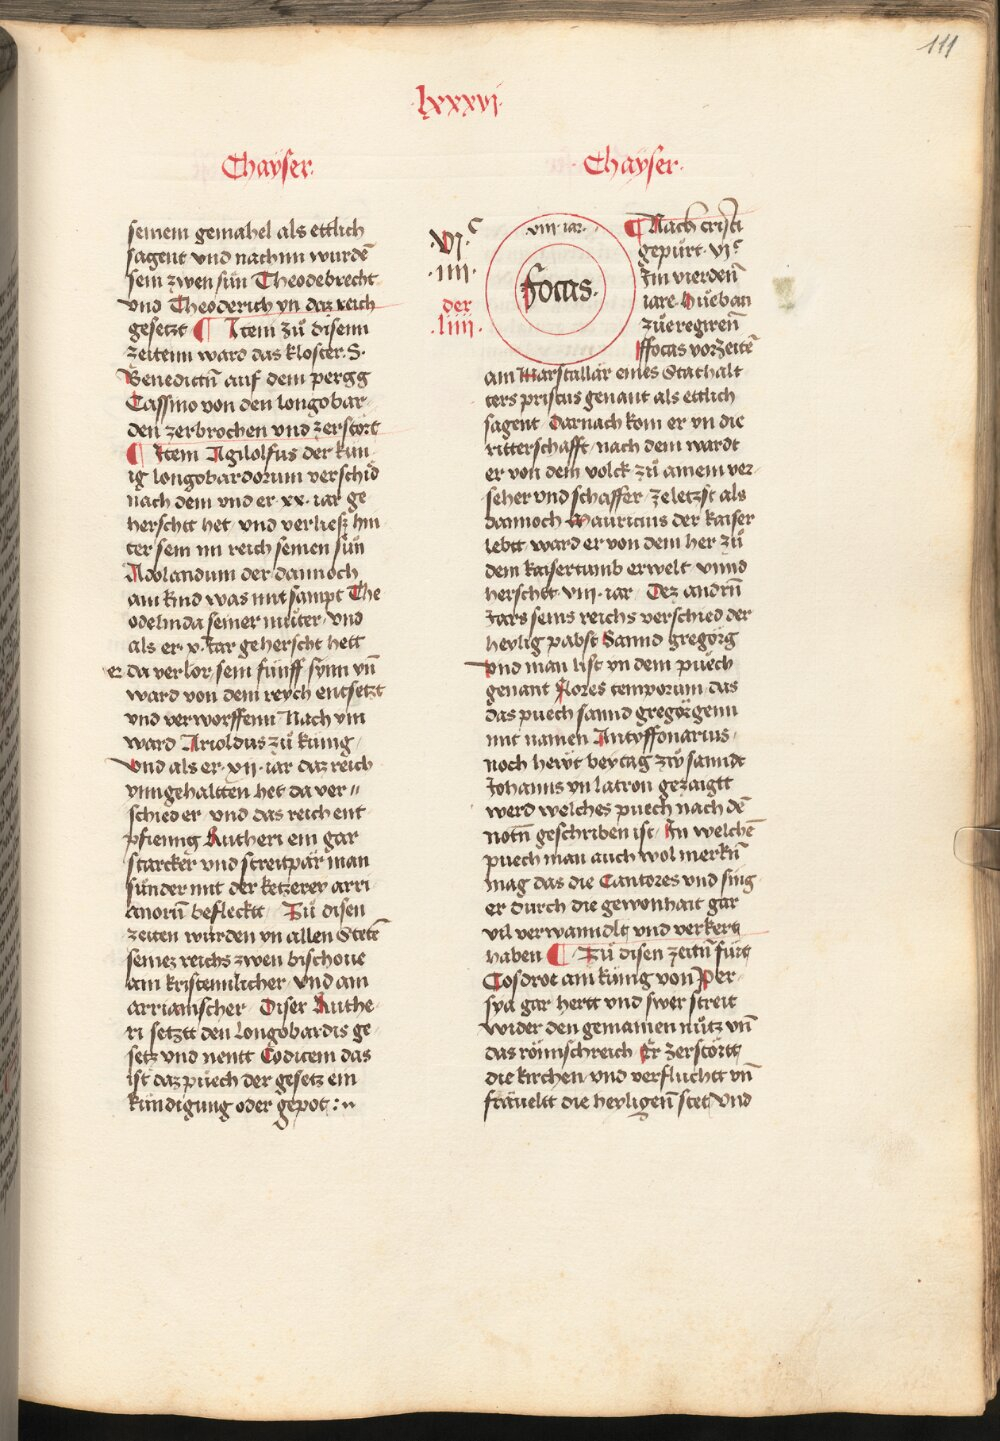 111
·lxxxvj·
Chaÿser·
semem gemahel als ettlich
sagent vnd nachim wurdē
sein zwen sün Theodebrecht
vnd Theoderich yn daz reich
gesetzt ¶ Item zů disenn
zeitenn ward das kloster · S ·
Benedictn̄ auf dem pergg
Cassino von den longobar
den zerbrochen vnd zerstört
¶ Item Agilolfus der kün
ig longobardorum verschid
nach dem vnd er · xx · iar ge
herscht het vnd verliesz hin
ter sein im reich seinen sün
Adolandum der dannoch
ain kind was mit sampt The
odelinda seiner můter vnd
als er · x · Jar geherscht hett
er da verlor sein fünff synn vn̄
ward von dem reych entsetzt
vnd verworffenn Nach ym
ward Arioldus zů künig
vnd als er · xij · iar daz reich
ynngehaltten het da ver〃
schied er vnd das reich ent
pfienng Autheri ein gar
starcker vnd streitpar man
sunder mit der ketzerey arri
anorū befleckt Zů disen
zeiten wurden yn allen Stetē
seinez reichs zwen bischoue
ain kristennlicher vnd ain
arrianischer Diser Authe
ri setztt den longobardis ge
setz vnd nentt Codicem das
ist daz půech der gesetz ein
kündigung oder gepot : 〃
Chaÿser·
·vjᶜ
·iiij·
der
·liiij·
·viij·iar·
focas·
¶ Nach cristi
gepürt · vjᶜ
Jm vierdenn̄
iare Hůeban
zůeregirenn̄
ffocas vorzeitē
ain Marstallar eines Stathalt
ters priscus genant als ettlich
sagent Darnach kom er yn die
ritterschafft nach dem wardt
er von dem volck zů ainem ver
seher vnd schaffer zeletzst als
dannoch Mauricius der kaiser
lebtt ward er von dem her zů
dem kaisertumb erwelt vnnd
herschtt · viij · iar Dez andrn̄
Jars seins reichs verschied der
heylig pabst Sannd gregorg
vnd man list yn dem půech
genant flores temporum das
das puech sannd gregorgenn
mit namen Antyffonarius
noch hewt beytag zẘ sanndt
Johanns yn latron gezaigtt
werd welches puech nach dē
notn̄ geschriben ist Jn welchē
puech man auch wol merkn̄
mag das die Cantores vnd sing
er durch die gewonhait gar
vil verwanndlt vnd verkert
haben ¶ Zů disen zeitn̄ fürt
Cosdroe ain künig von Per
sya gar hertt vnd swer streit
wider den gemainen nütz vn̄
das römisch reich Er zerstörtt
die kirchen vnd verfluchtt vn̄
fräueltt die heyligen̄ stet vnd